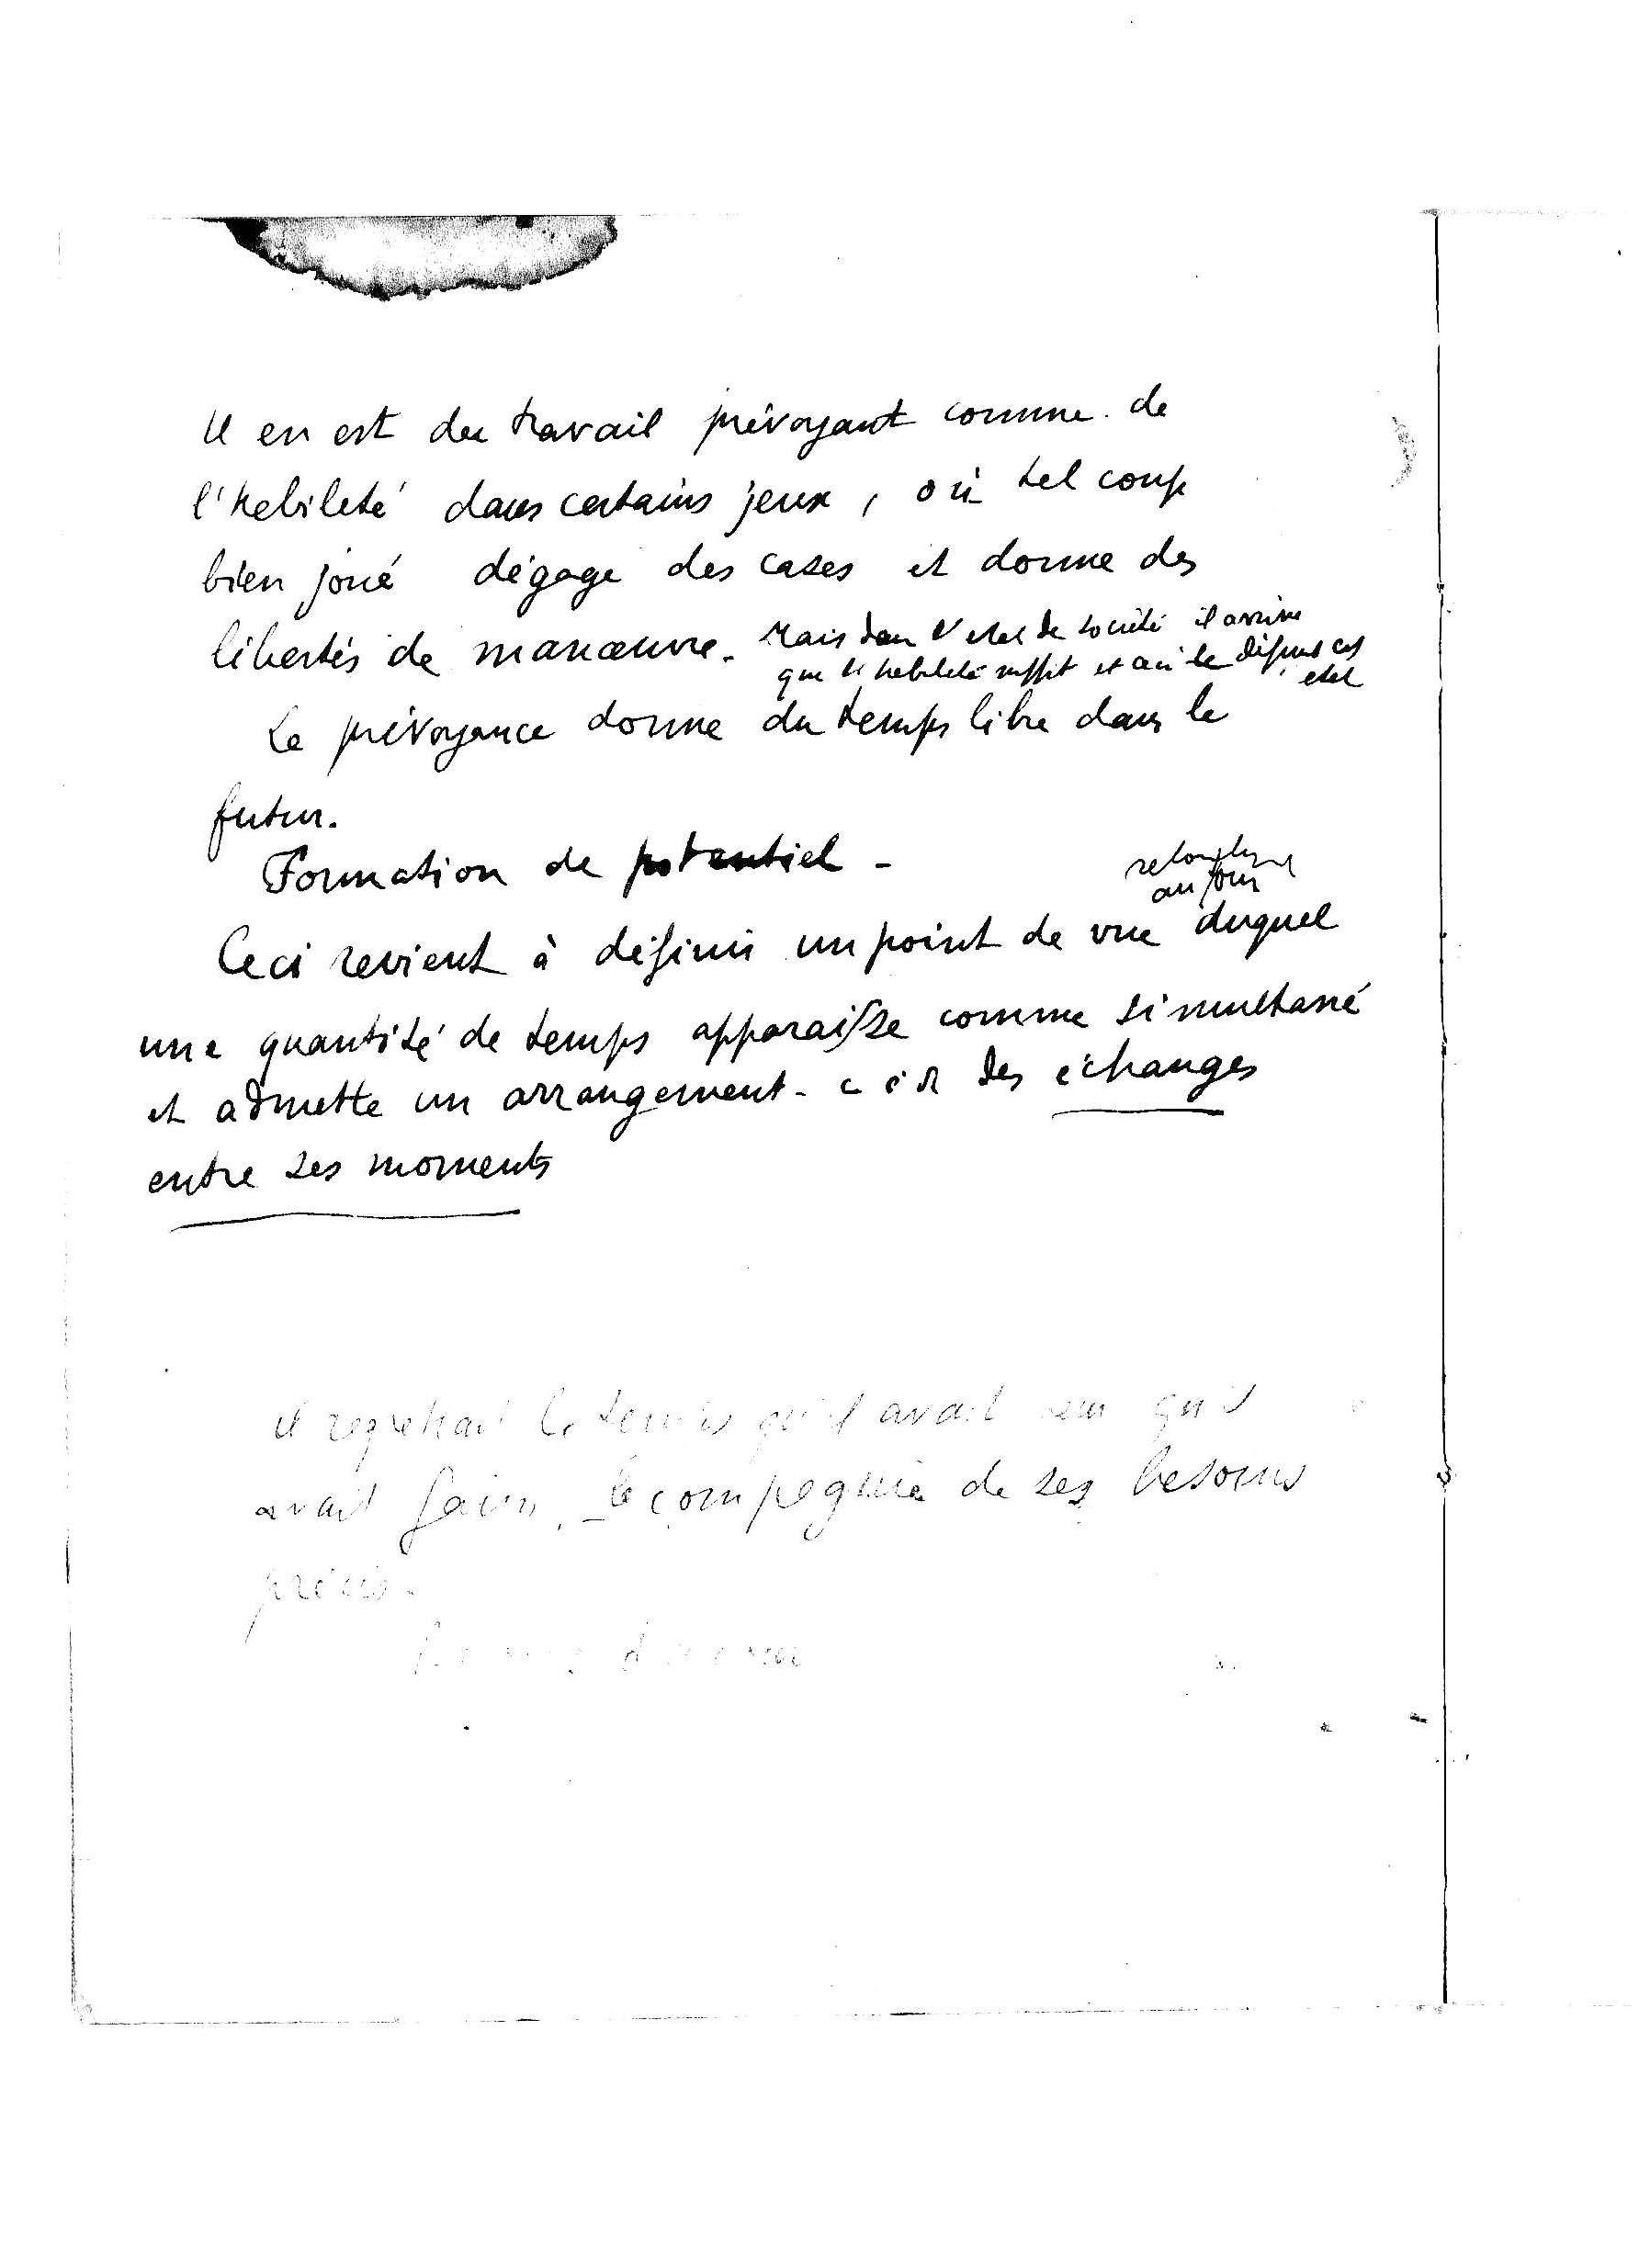 Il en est du travail prévoyant comme de
l'habileté dans certains jeux, où tel coup
bien joué dégage des cases et donne des
libertés de manœuvre. Mais dans l'état de société il arrive
que l'habileté suffit et
état
La prévoyance donne du temps libre dans le
futur.
Formation de potentiel -
au jour
Ceci revient à définir un point de vue duquel
une quantité de temps apparaisse comme simultané
et admette un arrangement - c à d des échanges
entre ses moments
il regrettait le temps qu'il avait qu'il
avait faim, la compagnie de ses besoins
précis.